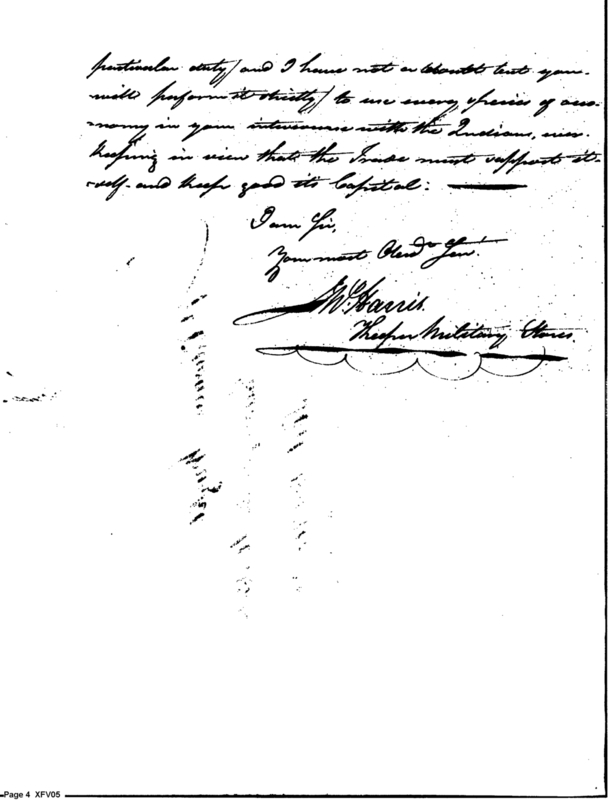 particular duty/ and I have not a doubt but you
will perform it strictly/ to use every species of œco-
nomy in your intercourse with the Indians, ever
keeping in view that the Trade must support it-
-self- and keep good its Capital: —
I am Sir,
Your most Obed.t Ser.t
Harris.
Keeper Military Stores.
Page 4 XFV05